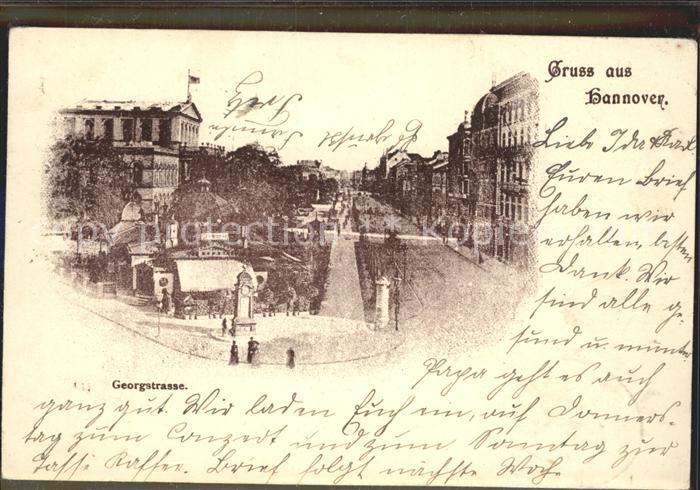 Gruss aus
Hannover.
Liebe Ida & Karl
Euren Brief
haben wir
erhalten, besten
Dank. Wir
sind alle ge-
sund u. munter
Papa geht es auch
ganz gut. Wir laden Euch ein, auf Donners-
tag zum Conzert und zum Sonntag zur
Tasse Kaffee. Brief folgt nächste Woch
Georgstrasse.